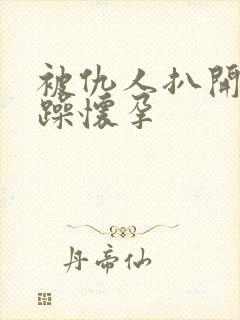 被仇人扒開
躁懷孕
丹帝仙